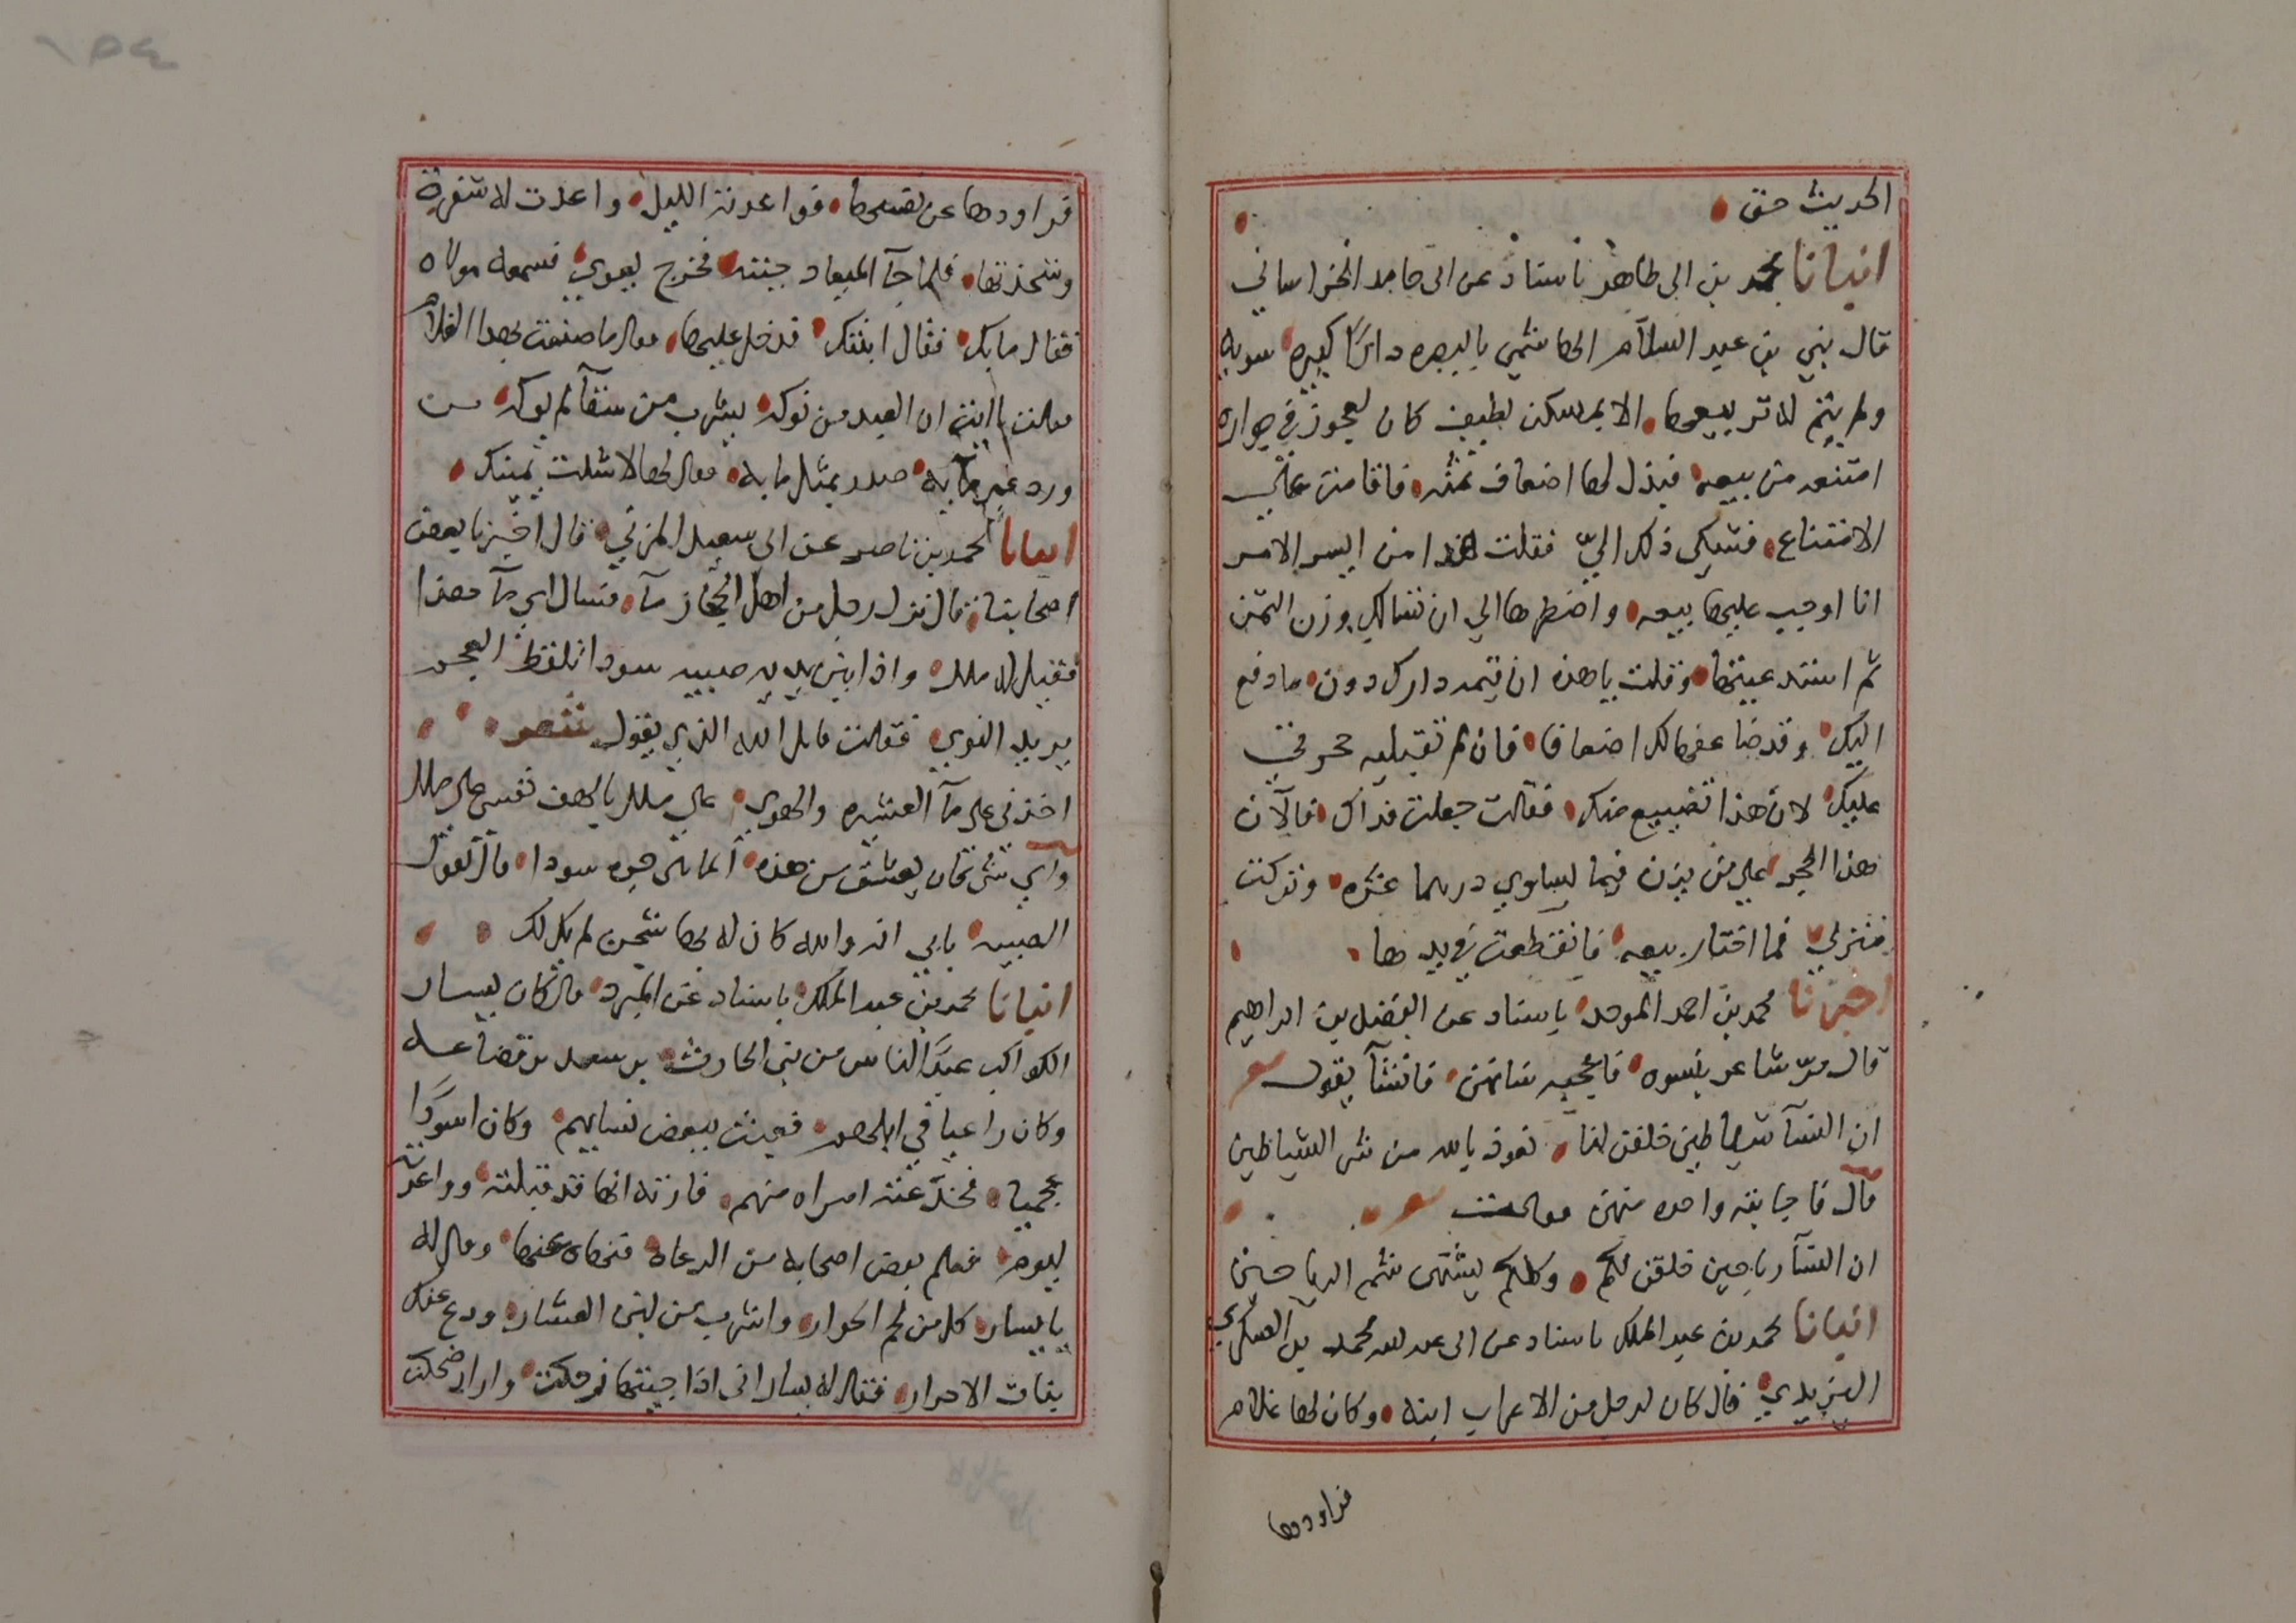 الحديث حق
انبانا محمد بن ابي طاهر باسناد عن ابي حامد الخراساني
قال بني بن عبد السلام الهاشمي بالبصره دارًا كبيره سويه
ولم يتم له تربيعها الا بمسكن لطيف كان لعجوز في جواره
امتنعه من بيعه فبذل لها اضعاف ثمنه فاقامت علي
الامتناع فشكي ذلك اليّ فقلت هذا من ايسر الامر
انا اوجب عليها بيعه واضطرها الي ان تسالك وزن الثمن
ثم استدعيتها وقلت يا هذه ان قيمه دارك دون ما دفع
اليك وقد ضاعفها لك اضعافا فان لم تقبليه حجرت
عليك لان هذا تضييع منك فقالت جعلت فداك فالا كان
هذا الحجر علي من يزن فيما يساوي درهما عشره وتركت
منزلي فما اختار بيعه فانقطعت في يدها
اخبرنا محمد بن احمد الموحد باسناد عن الفضل بن ابراهيم
قال مرّ شاعر بنسوه فاعجبه شانهن فانشا يقول
ان النسآ شياطين خلقن لنا نعوذ بالله من شر الشياطين
قال فاجابته واحده منهن وقالت
ان النسآ رياحين خلقن لكم وكلكم يشتهى شم الرياحين
انبانا محمد بن عبد الملك باسناد عن ابي عبد الله محمد بن العسكري
اليزيدي قال كان لرجل من الاعراب ابنه وكان لها غلام
فراودها
فراودها عن نفسها فواعدته الليل واعدت له شفرة
وشحذتها فلما جآ الميعاد جبته فخرج يعوي فسمعه مولاه
فقال ما بك فقال ابنتك فدخل عليها وقال ما صنعت بهذا الغلام
وقالت يا ابت ان العبد من نوكه يشرب من سقآ لم يوكه من
ورد غير مآيه صدر بمثل ما به وقال لها لا شلت يمينك
انبانا محمد بن ناصر عن ابي سعيد المزني قال اخبرنا بعض
اصحابنا قال نزل رجل من اهل الحجاز مآ فسال اي مآ هذا
فقيل له ملل واذا بين يديه صبيه سودا تلقط العجم
يريد النوي فقالت قاتل الله الذي يقول شعر
اخذتي علي مآ العشيره والهوي علي ملل يا لهف نفسي علي ملل
واي شي كان يعشق من هذه انما هي حره سودا قال تقول
الصبيه بابي انه والله كان له بها شجن لم يكن لك
انبانا محمد بن عبد الملك باسناد عن المبرد قال كان يسار
الكواكب عبدًا لناس من بني الحارث بن سعد بن قضاعه
وكان راعيا في ابلهم فعبث ببعض نسايهم وكان اسودًا
عجميا فخدعته امراه منهم فارته انها قد قبلته وواعدته
ليوم فعلم بعض اصحابه من الرعاه فنهاه عنها وقال له
يا يسار كل من لحم الحوار واشرب من لبن العشار ودع عنك
بنات الاحرار فقال له يسار اني اذا جيتها زحكت واراد ضحكت